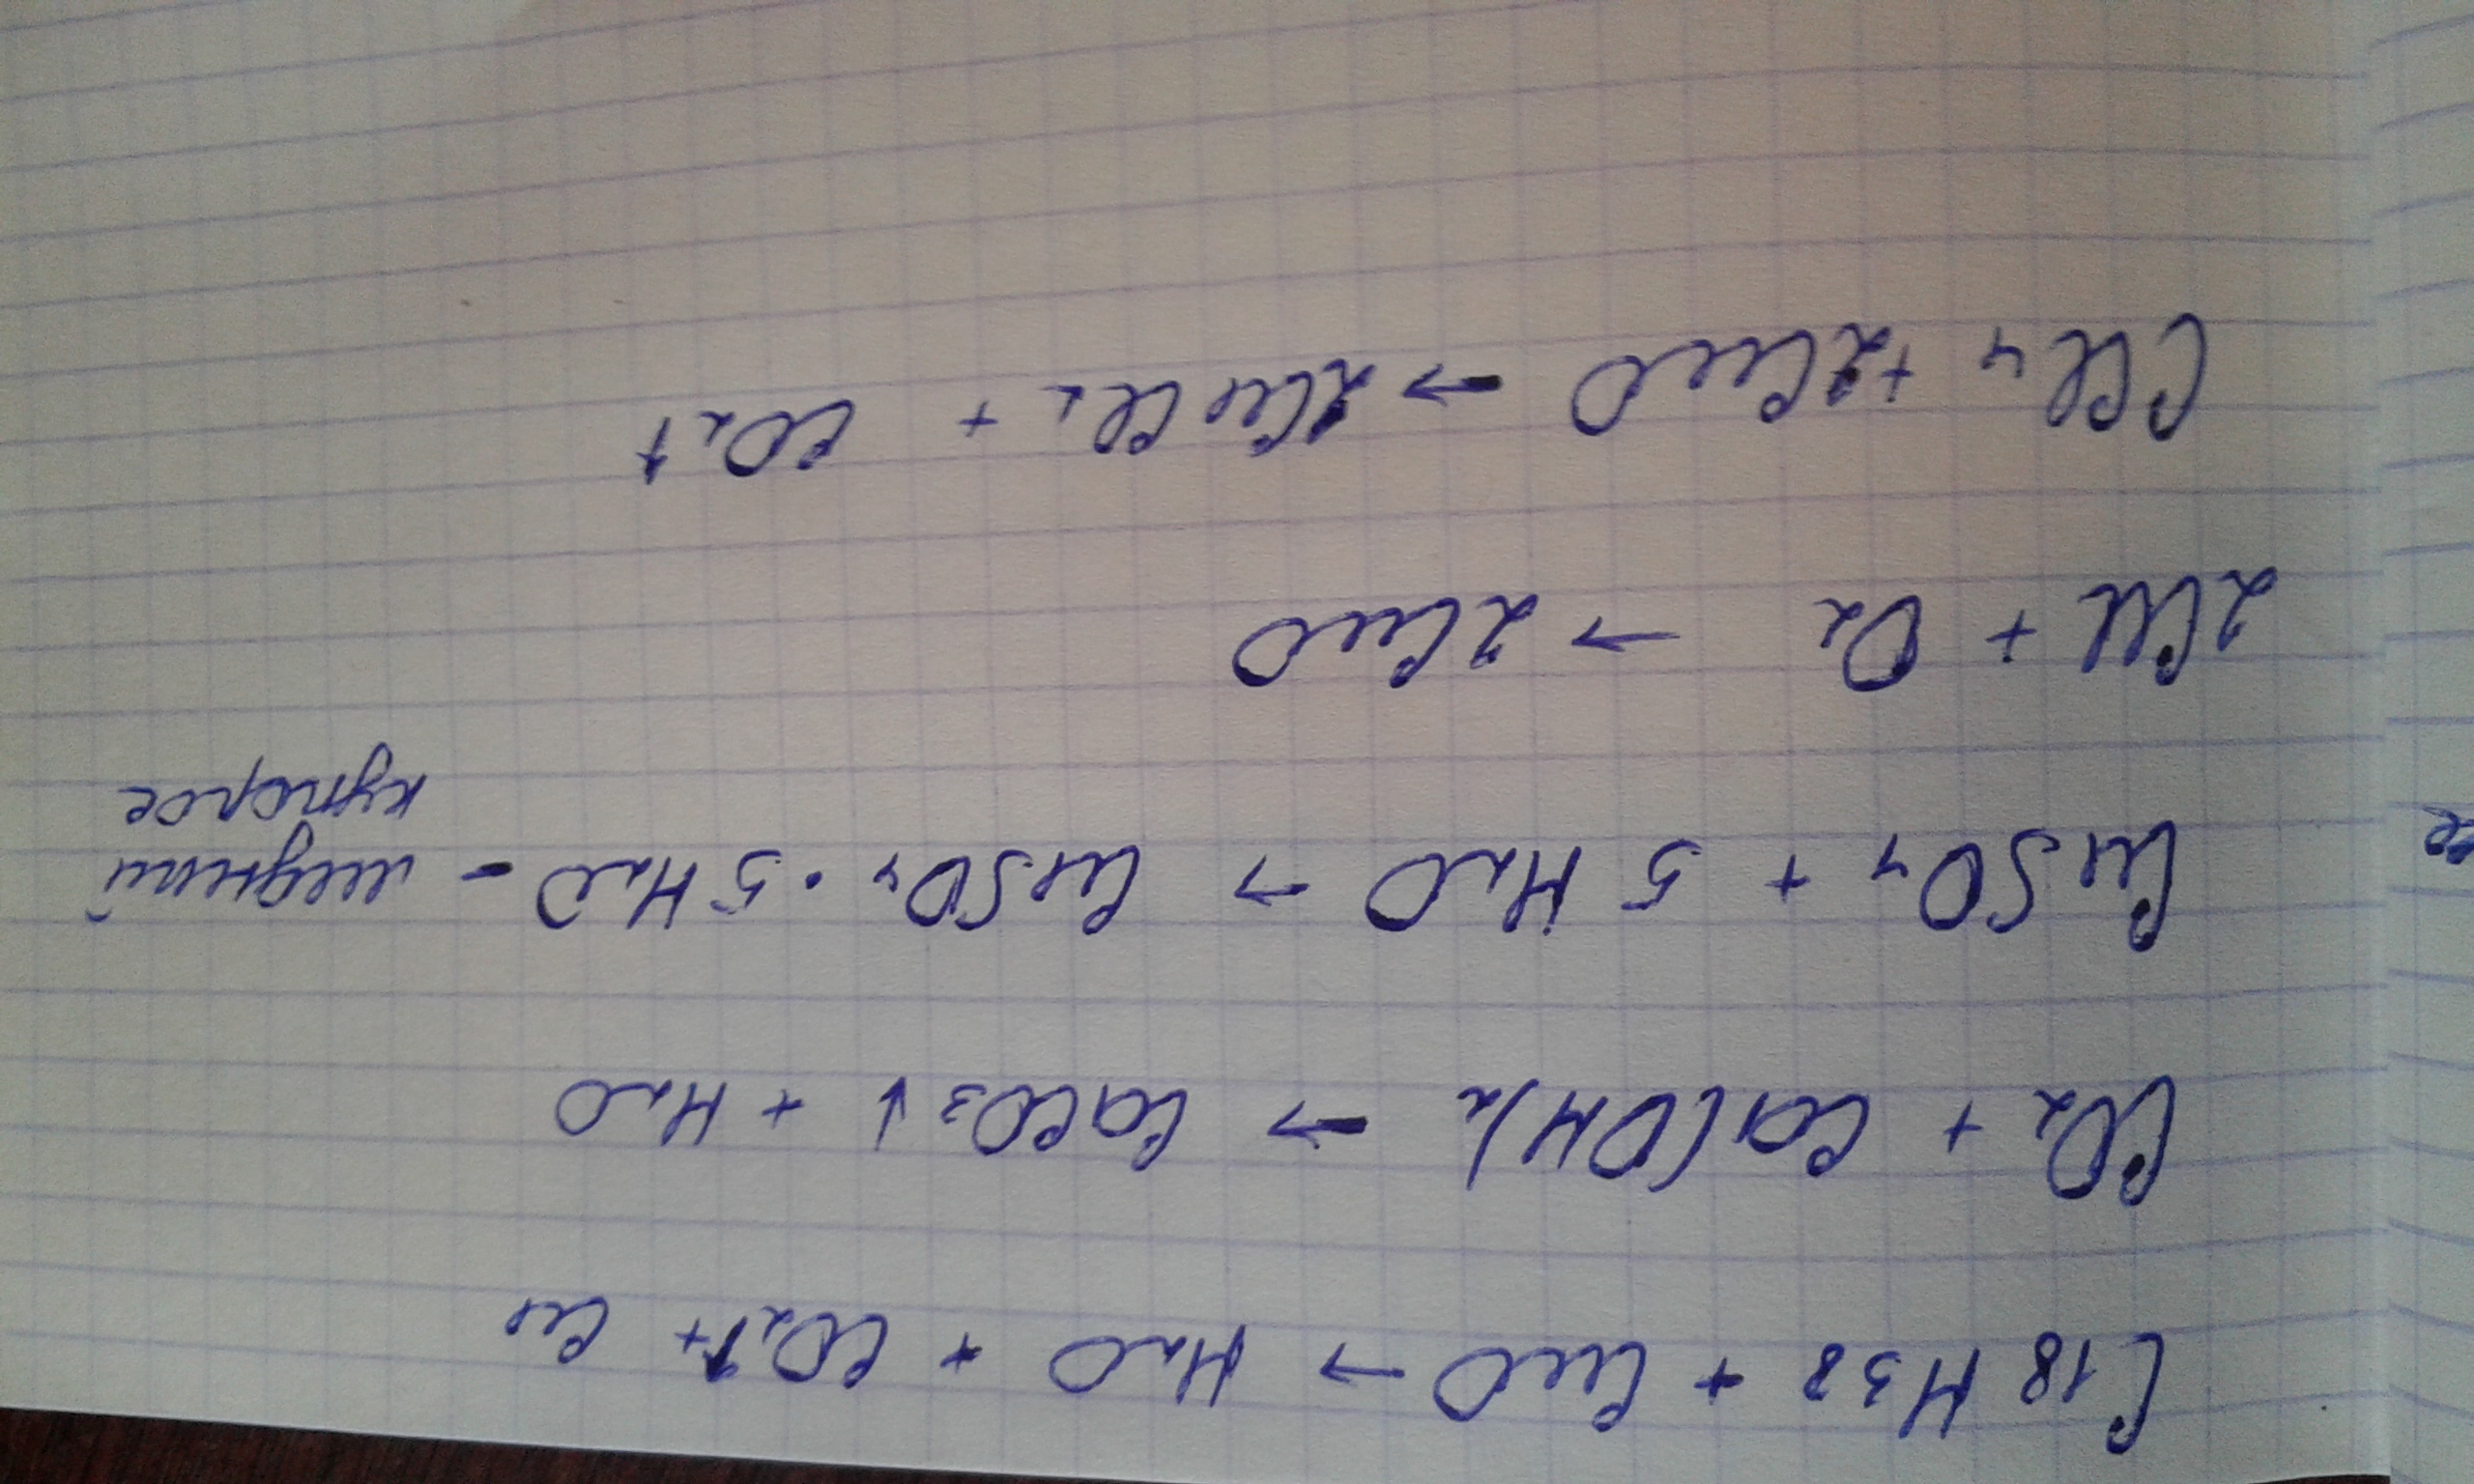 C18H38 + CuO → H2O + CO2↑ + Cu
CO2 + Ca(OH)2 → CaCO3↓ + H2O
CuSO4 + 5H2O → CuSO4·5H2O - медный
купорос
2Cu + O2 → 2CuO
CCl4 + 2CuO → 2CuCl2 + CO2↑